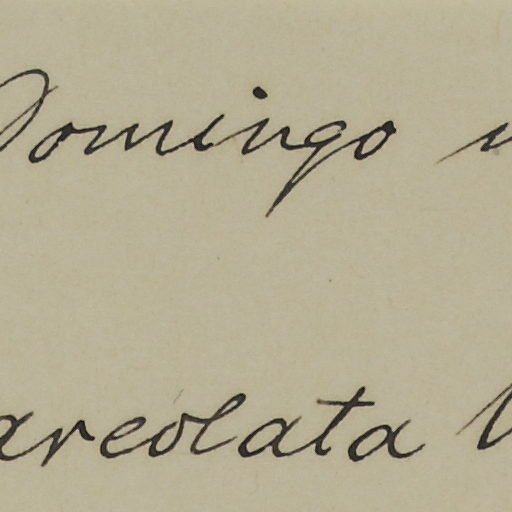 Domingo
areolata